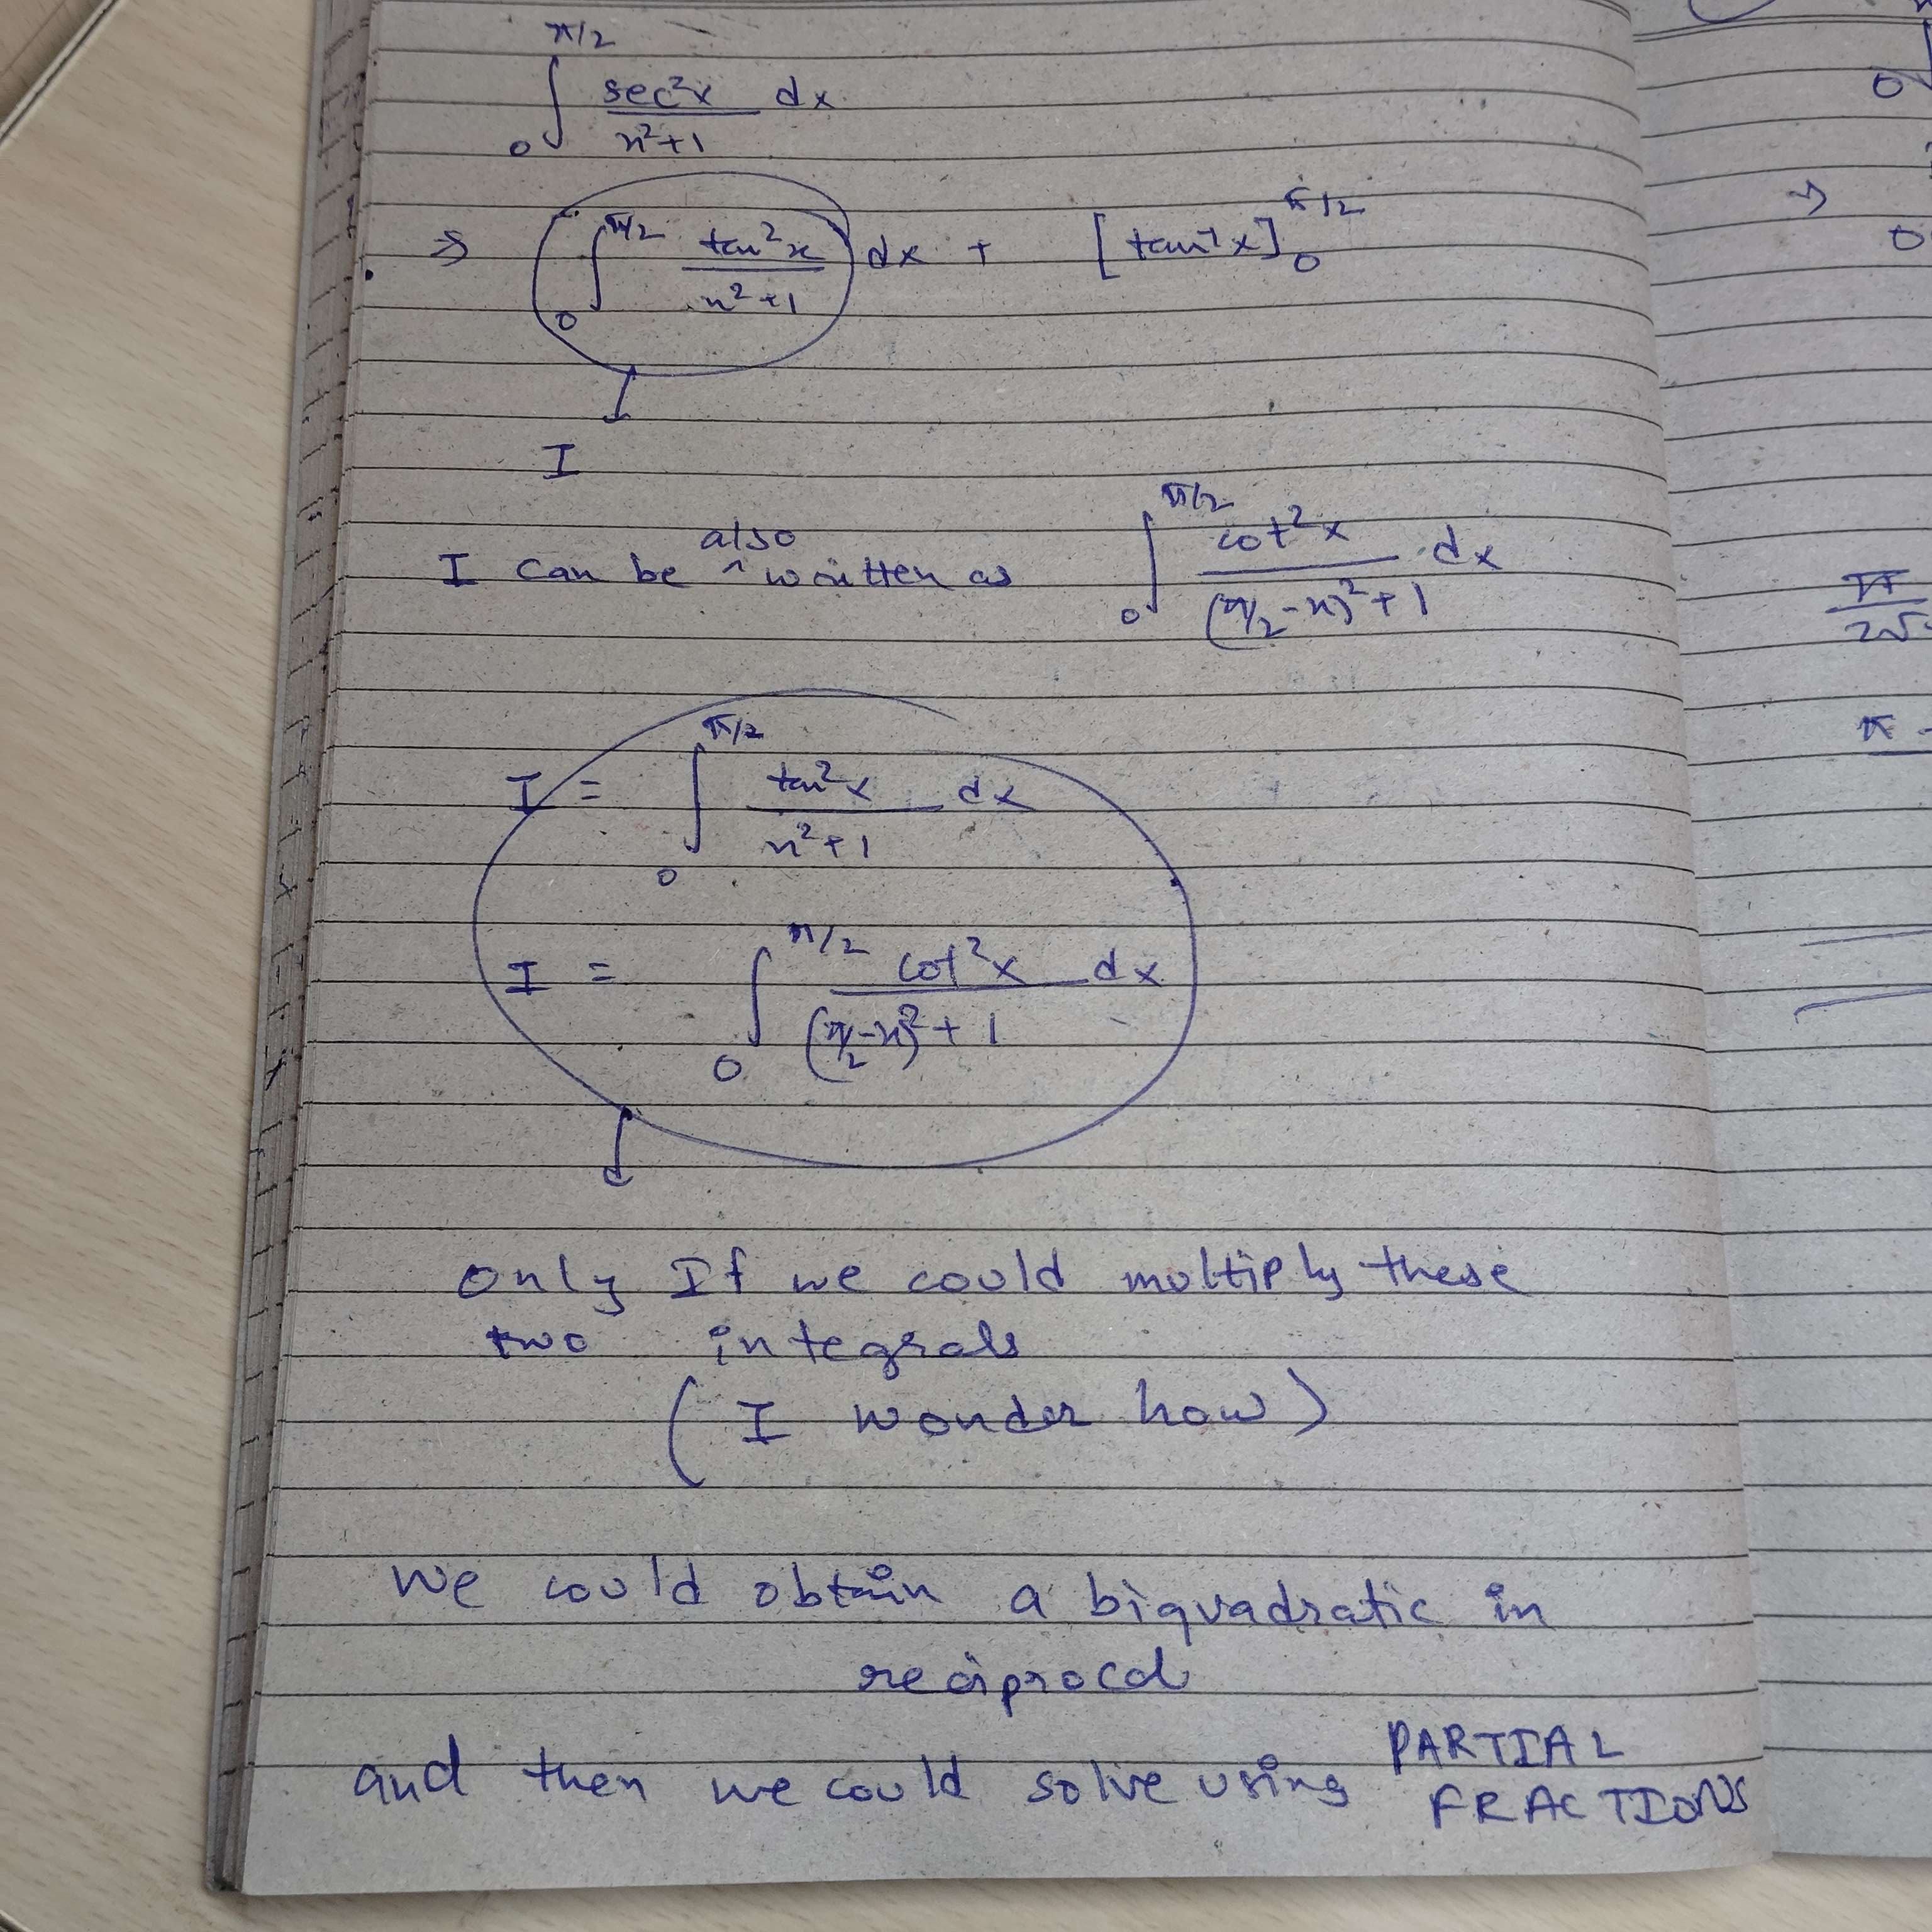 ∫₀^π/2 sec²x / x²+1 dx
⇒ ∫₀^π/2 tan²x / x²+1 dx + [tan⁻¹x]₀^π/2
I
I can be ^also written as ∫₀^π/2 cot²x / (π/2-x)²+1 dx
I = ∫₀^π/2 tan²x / x²+1 dx
I = ∫₀^π/2 cot²x / (π/2-x)²+1 dx
only If we could multiply these
two integrals
(I wonder how)
we could obtain a biquadratic in
reciprocal
and then we could solve using PARTIAL
FRACTIONS